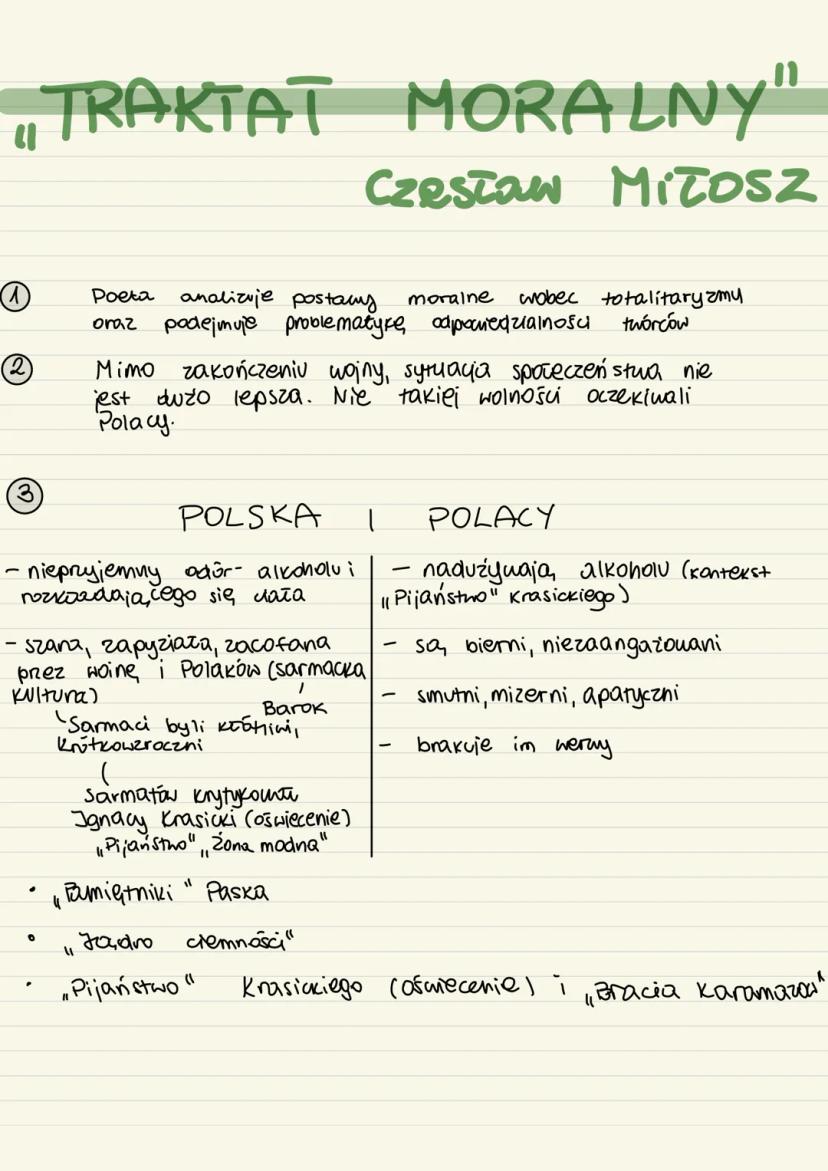 „TRAKTAT MORALNY"
Czesław Miłosz
1 Poeta analizuje postawy moralne wobec totalitaryzmu
oraz podejmuje problematykę odpowiedzialności twórców
2 Mimo zakończeniu wojny, sytuacja społeczeństwa nie
jest dużo lepsza. Nie takiej wolności oczekiwali
Polacy.
3
POLSKA | POLACY
- nieprzyjemny odór - alkoholu i
rozkładającego się ciała
- szara, zapyziała, zacofana
przez wojnę i Polaków (sarmacka
kultura)
Barok
Sarmaci byli kłótliwi,
krótkowzroczni
Sarmatów krytykował
Ignacy Krasicki (oświecenie)
„Pijaństwo" „Żona modna"
- nadużywają alkoholu (kontekst
„Pijaństwo" Krasickiego)
- są bierni, niezaangażowani
- smutni, mizerni, apatyczni
- brakuje im werwy
• „Pamiętniki" Paska
• „Jądro ciemności"
• „Pijaństwo" Krasickiego (oświecenie) i „Bracia Karamazow"